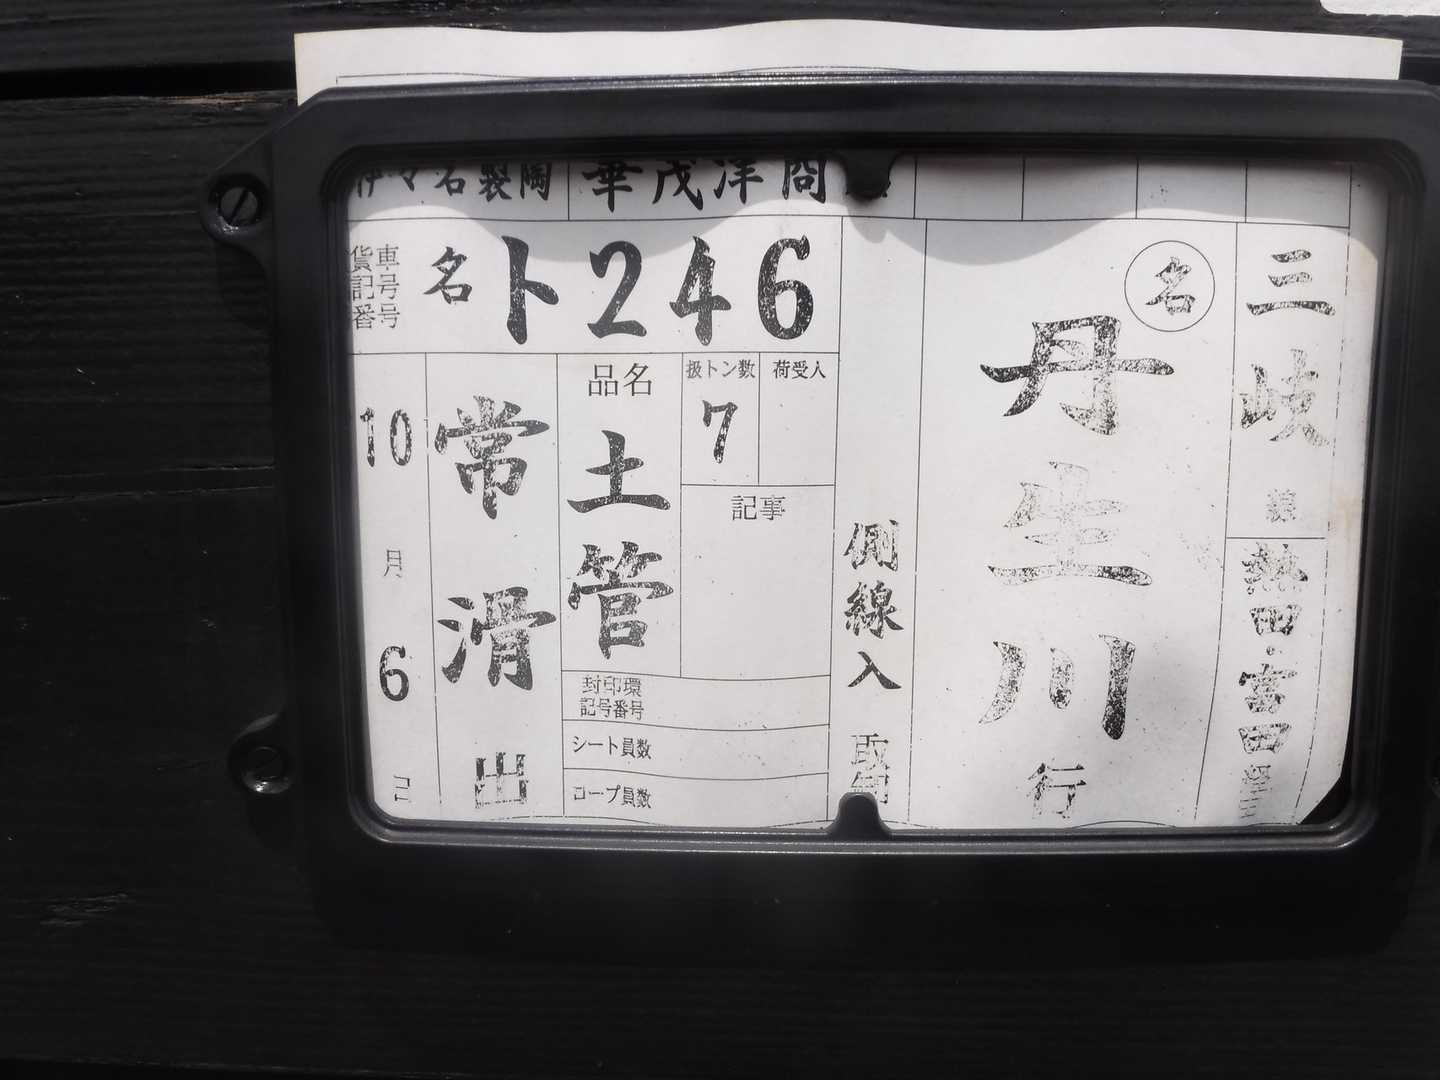 製陶
華茂洋
貨車
記号
番号
名ト246
名
丹生川
行
三岐
線
熱田・富田
側線入
扱トン数
7
荷受人
記事
品名
土管
封印環
記号番号
シート員数
ロープ員数
常滑
出
10
月
6